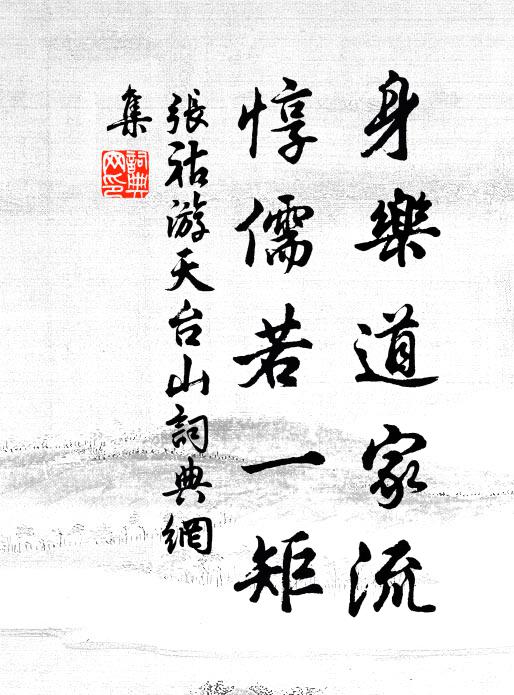 身樂道家流
惇儒若一矩
張祜游天台山詞典網
集
詞典
网印